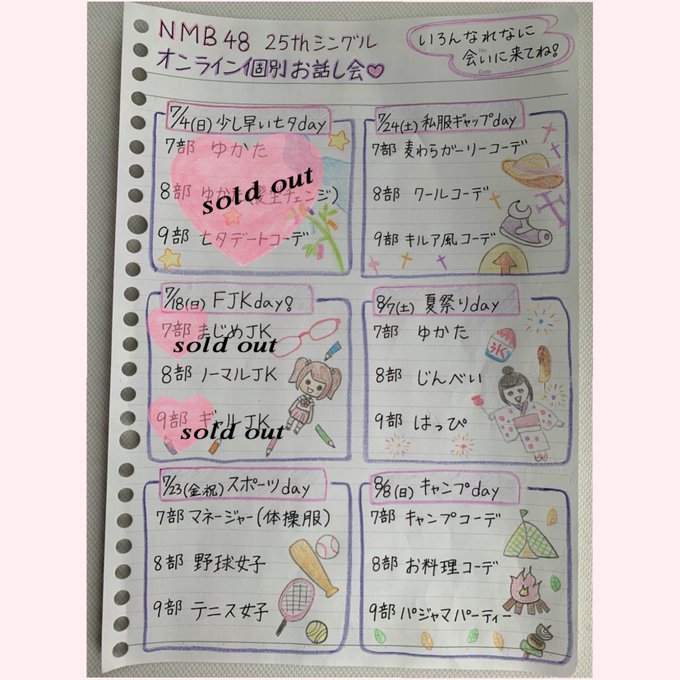 NMB48 25thシングル
オンライン個別お話し会♡
いろんなれなに
会いに来てね!
No.
Date
7/4(日)少し早い七夕day
7部 ゆかた
8部 ゆかた(後生チェンジ)
sold out
9部 七夕デートコーデ
7/24(土)私服ギャップday
7部 麦わらガーリーコーデ
8部 クールコーデ
9部 キルア風コーデ
7/18(日)FJKday!
7部 まじめJK
sold out
8部 ノーマルJK
9部 ギャルJK
sold out
8/7(土)夏祭りday
7部 ゆかた
8部 じんべい
9部 はっぴ
氷
7/23(金祝)スポーツday
7部 マネージャー(体操服)
8部 野球女子
9部 テニス女子
8/8(日)キャンプday
7部 キャンプコーデ
8部 お料理コーデ
9部 パジャマパーティー